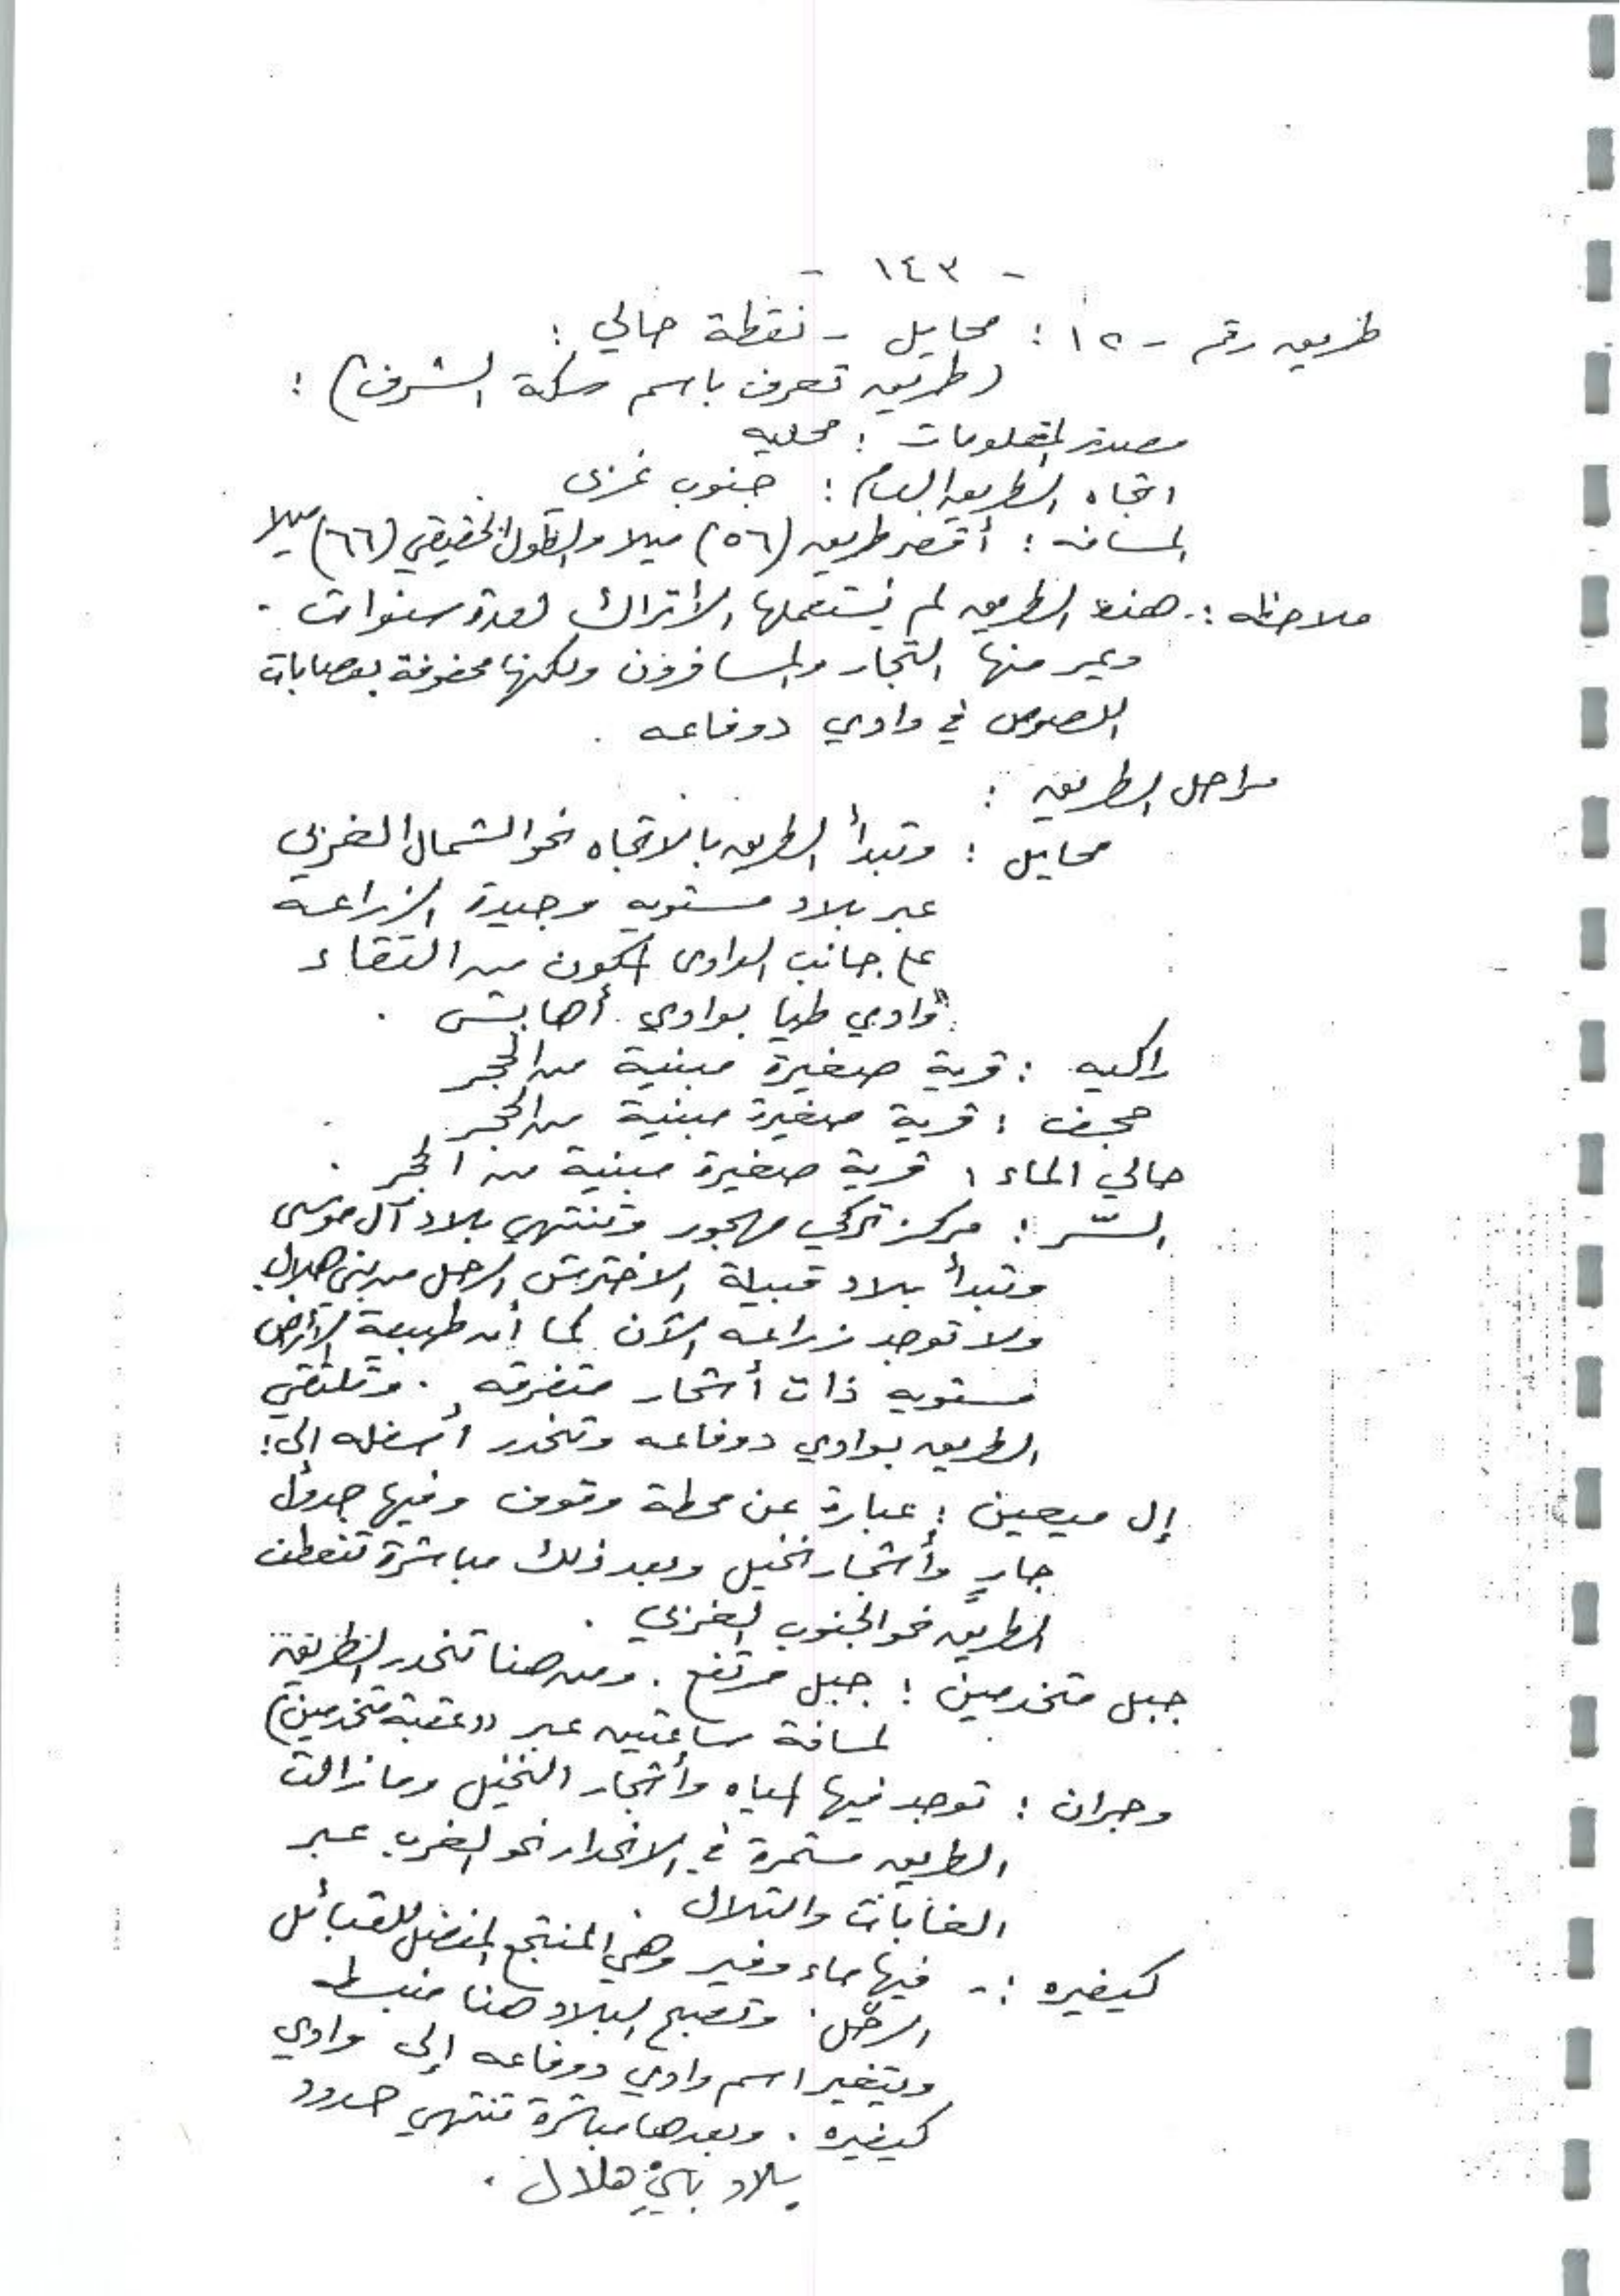 - ١٤٣ -
طريق رقم - ١٢ : محايل - نقطة حالي :
(طريق تعرف باسم سكة الشرف) :
مصدر المعلومات : محليه
اتجاه الطريق العام : جنوب غربي
المسافه : أقصر طريق (٥٦) ميلا والطول الحقيقي (٦٦) ميلا
ملاحظه :. هذه الطريق لم يستعملها الأتراك لعدة سنوات .
ويمر منها التجار والمسافرون ولكنها محفوفة بعصابات
اللصوص في وادي دوفاعه .
مراحل الطريق :
محايل : وتبدأ الطريق بالاتجاه نحو الشمال الغربي
عبر بلاد مستويه وجيدة الزراعة
على جانب الوادي المكون من التقاء
وادي طيا بوادي أهابش .
راكبه : قرية صغيرة مبنية من الحجر
حجف : قرية صغيرة مبنية من الحجر
حالي الماء : قرية صغيرة مبنية من الحجر .
السّر : مركز تركي مهجور وتنتهي بلاد آل موسى
وتبدأ بلاد قبيلة الاخترش الرحل من بني هلال
ولا توجد زراعه الآن كما أن طبيعة الأرض
مستويه ذات أشجار متفرقه . وتلتقي
الطريق بوادي دوفاعه وتنحدر أسفله إلى :
إل ميعين : عبارة عن محطة وقوف وفيها جدول
جارٍ وأشجار نخيل وبعد ذلك مباشرة تنعطف
الطريق نحو الجنوب الغربي .
جبل متخدمين : جبل مرتفع . ومن هنا تنحدر الطريق
لمسافة ساعتين عبر ((عقبة متخدمين)
وجران : توجد فيها المياه وأشجار النخيل وما زالت
الطريق مستمرة في الانحدار نحو الغرب عبر
الغابات والتلال .
كيفيره :- فيها ماء وفير وهي المنتجع المفضل للقبائل
الرحّل . وتصبح البلاد هنا منبسطه
ويتغير اسم وادي دوفاعه إلى وادي
كيفيره . وبعدها مباشرة تنتهي حدود
بلاد بني هلال .